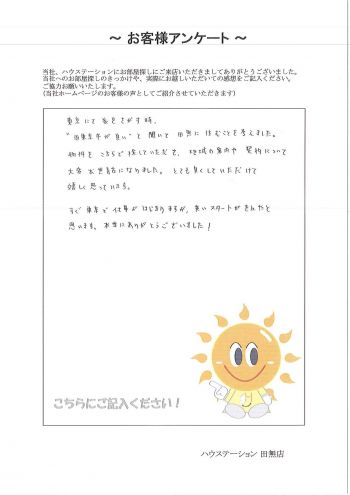 ～ お客様アンケート ～
当社、ハウステーションにお部屋探しにご来店いただきましてありがとうございました。
当社へのお部屋探しのきっかけや、実際にお越しいただいての感想をご記入ください。
ご協力お願いいたします。
(当社ホームページのお客様の声としてご紹介させていただきます)
東京にて 家をさがす時、
"西東京市が良い" と聞いて 田無に 住むことを考えました。
物件を こちらで 探していただき、地域の案内や 契約について
大変 お世話になりました。とても 良くしていただけて
嬉しく思っています。
すぐ 東京で 仕事が はじまりますが、良いスタートが きれたと
思います。本当にありがとうございました！
こちらにご記入ください！
ハウステーション 田無店